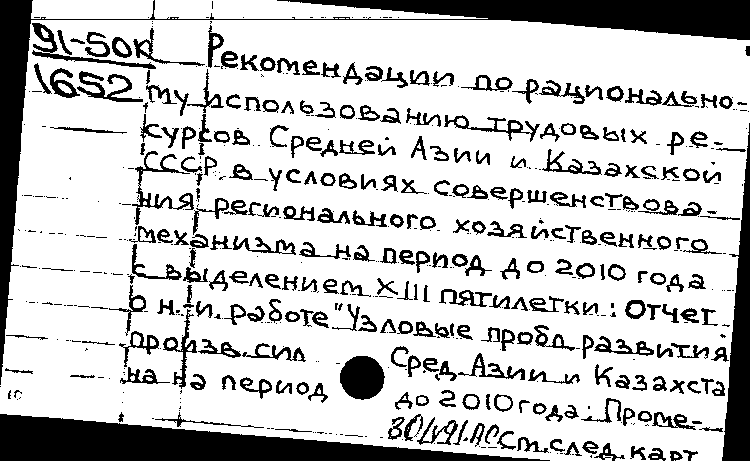 91-50к
1652
Рекомендации по рационально-
му использованию трудовых ре-
сурсов Средней Азии и Казахской
СССР в условиях совершенствова-
ния регионального хозяйственного
механизма на период до 2010 года
с выделением XIII пятилетки: Отчет
о н.-и. работе "Узловые пробл. развития
произв. сил Сред. Азии и Казахста
на на период до 2010 года: Проме-
См. след. карт